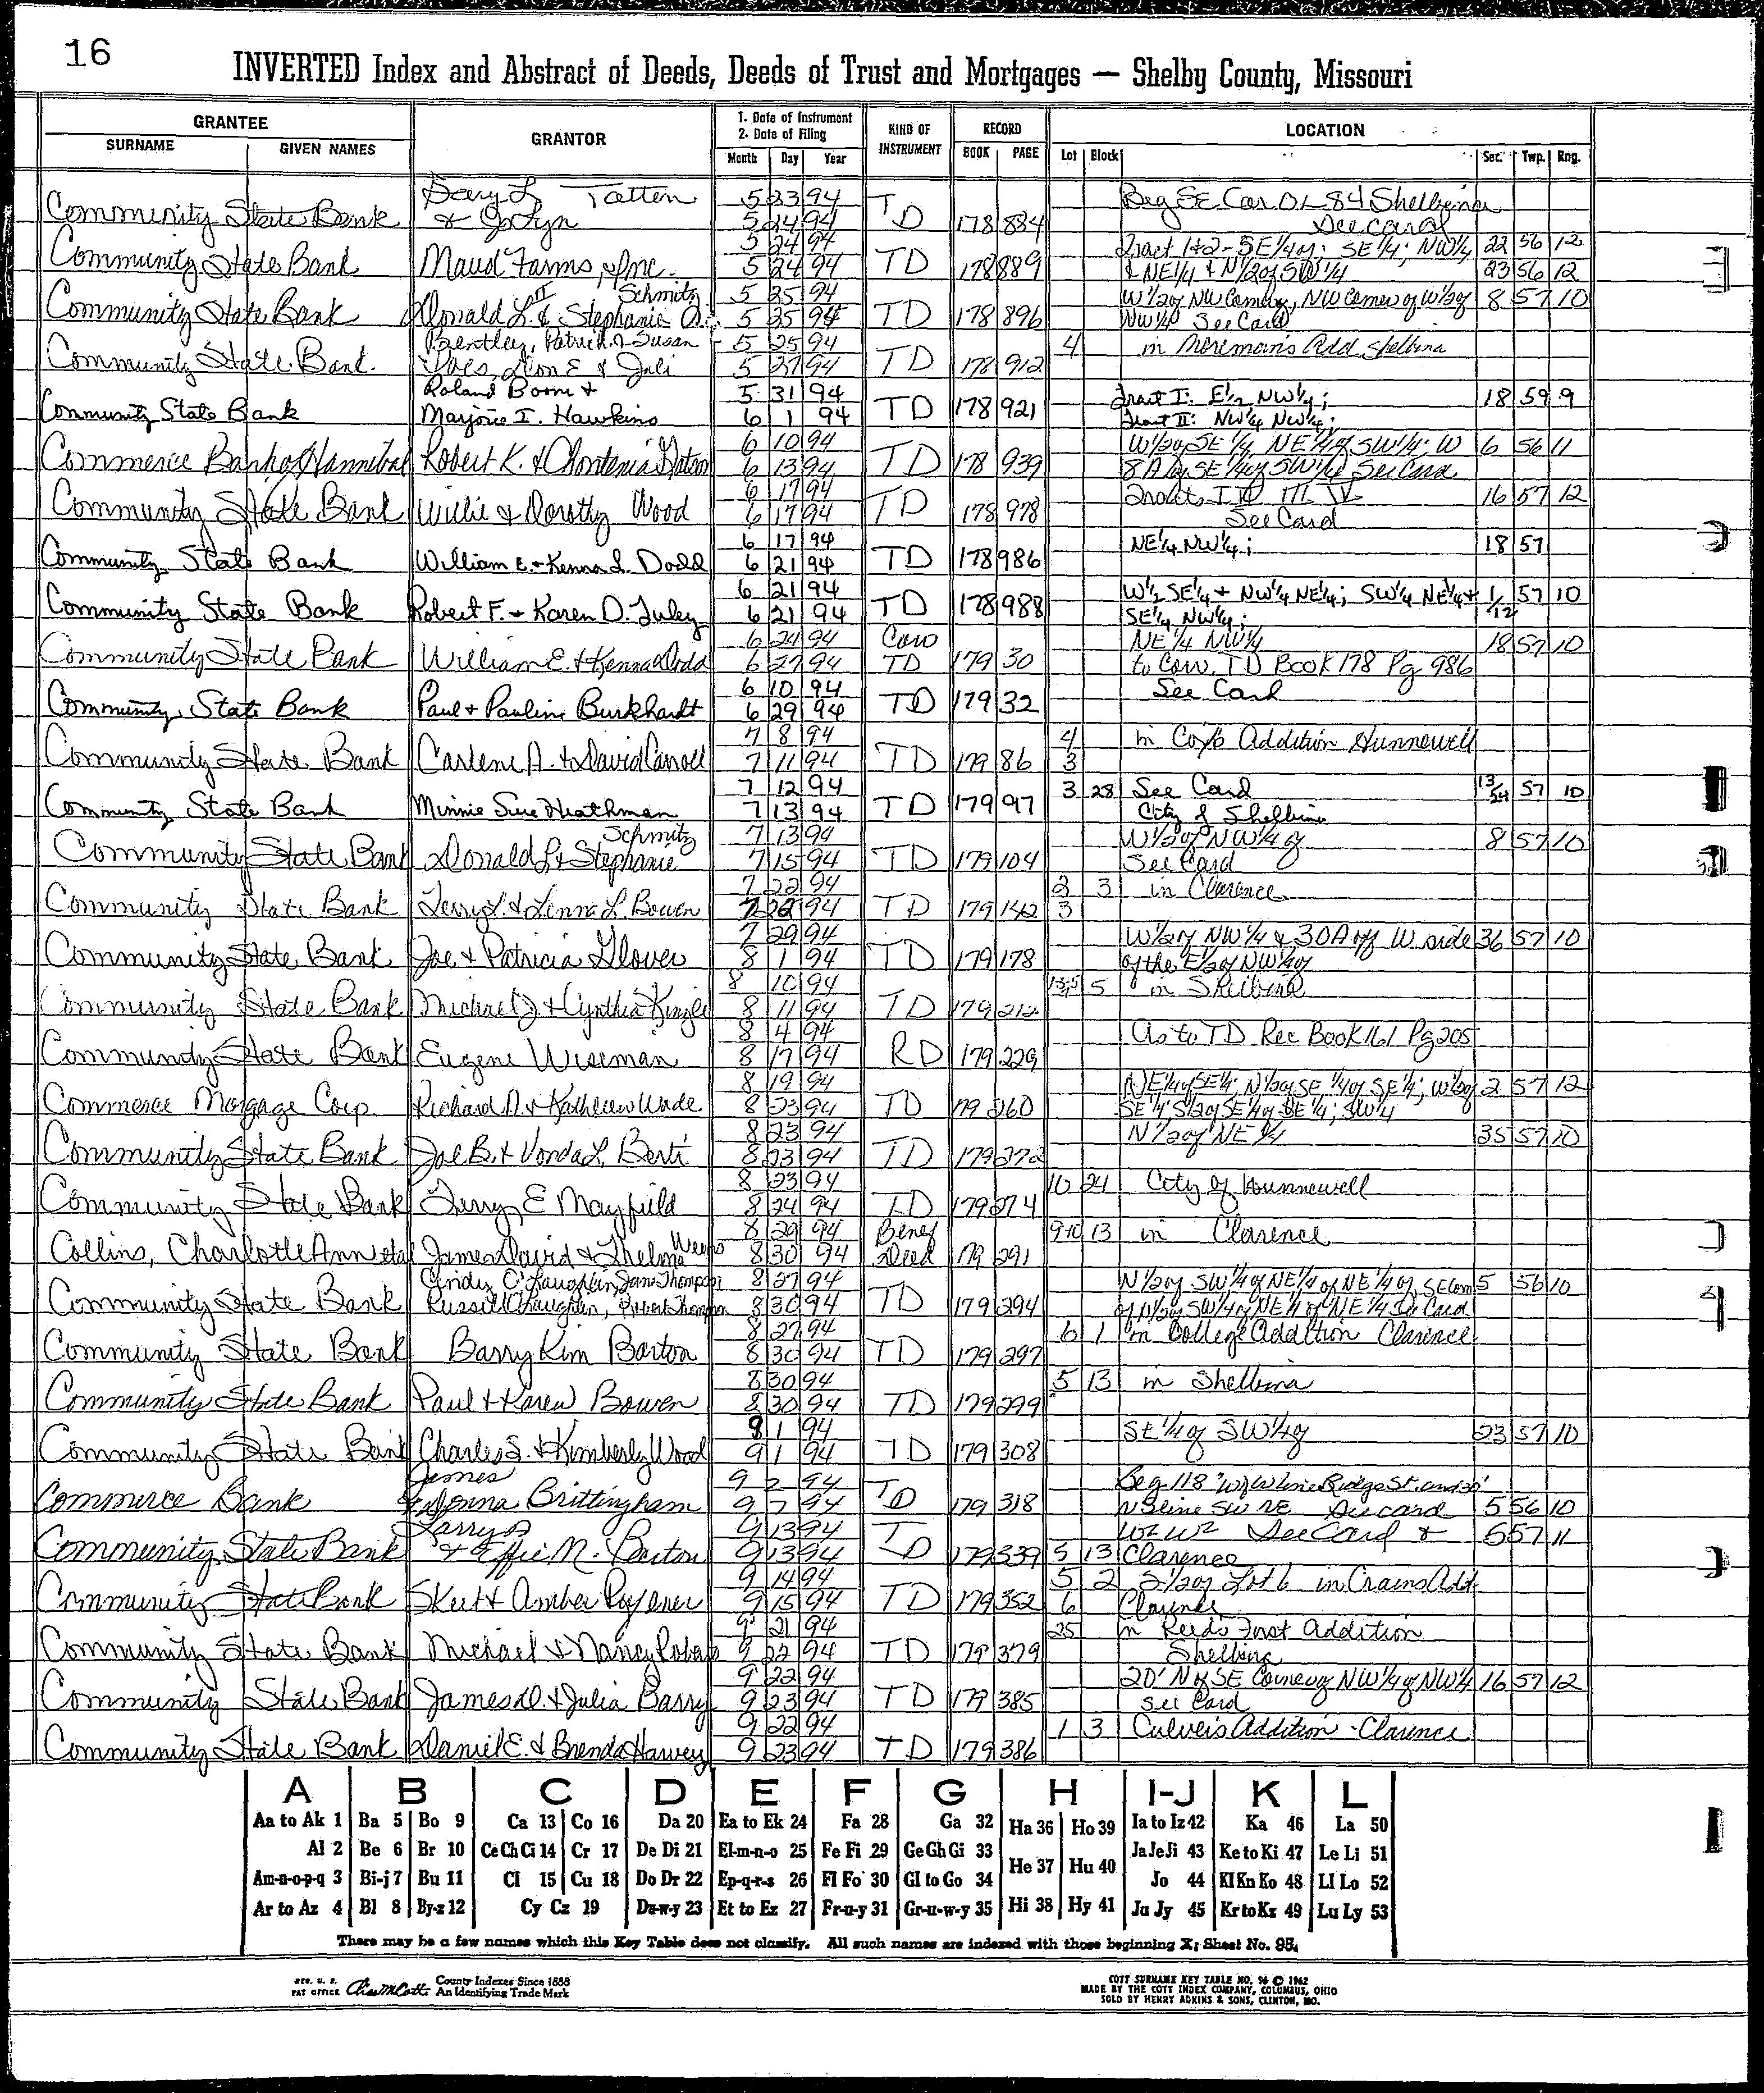 16
INVERTED Index and Abstract of Deeds, Deeds of Trust and Mortgages — Shelby County, Missouri
GRANTEE
SURNAME GIVEN NAMES
GRANTOR
1. Date of Instrument
2. Date of Filing
Month Day Year
KIND OF INSTRUMENT
RECORD
BOOK PAGE
LOCATION
Lot Block Sec. Twp. Rng.
Tatten 5 23 94 Beg SE Cor OL 84 Shelbina
Community State Bank & 5 24 94 TD 178 884 See Card
5 24 94 Tract 1+2 - SE 1/4 of; SE 1/4; NW 1/4 22 56 12
Community State Bank Maud Farms, Inc. 5 24 94 TD 178 889 & NE 1/4 & N 1/2 of SW 1/4 23 56 12
Schmitz 5 25 94 W 1/2 of NW NW Corner of W 1/2 of 8 57 10
Community State Bank Donald L. & Stephanie 5 25 94 TD 178 896 NW 1/4 See Card
Bentley, Patrick & Susan 5 25 94 4 in Moreman's Add Shelbina
Community State Bank Don E & Juli 5 27 94 TD 178 912
Roland Boone + 5 31 94 Tract I: E 1/2 NW 1/4; 18 59 9
Community State Bank Marjorie I. Hawkins 6 1 94 TD 178 921 Tract II: NW 1/4 NW 1/4;
6 10 94 W 1/2 of SE 1/4, NE 1/4 of SW 1/4; W 6 56 11
Commerce Bank of Hannibal Robert K. & 6 13 94 TD 178 939 8 A of SE 1/4 of SW 1/4 See Card
6 17 94 Tracts I II III IV 16 57 12
Community State Bank Willie & Dorothy Wood 6 17 94 TD 178 978 See Card
6 17 94 NE 1/4 NW 1/4; 18 57
Community State Bank William E. + Kenna L. Dodd 6 21 94 TD 178 986
6 21 94 W 1/2 SE 1/4 + NW 1/4 NE 1/4; SW 1/4 NE 1/4 + 1/12 57 10
Community State Bank Robert F. + Karen D. Tuley 6 21 94 TD 178 988 SE 1/4 NW 1/4;
6 24 94 Corr NE 1/4 NW 1/4 18 57 10
Community State Bank William E. & Kenna Dodd 6 27 94 TD 179 30 to Corr. TD Book 178 Pg 986
6 10 94 See Card
Community State Bank Paul + Pauline Burkhardt 6 29 94 TD 179 32
7 8 94 4 in Cox's Addition Hunnewell
Community State Bank Carlene A. & David Carroll 7 11 94 TD 179 86 3
7 12 94 3 28 See Card 13/24 57 10
Community State Bank Minnie Sue Heathman 7 13 94 TD 179 97 City of Shelbina
Schmitz 7 13 94 W 1/2 of NW 1/4 of 8 57 10
Community State Bank Donald L & Stephanie 7 15 94 TD 179 104 See Card
7 22 94 2 3 in Clarence
Community State Bank Terry L. & Lenna L Bowen 7 22 94 TD 179 142 3
7 29 94 W 1/2 of NW 1/4 & 30 A off W side 36 57 10
Community State Bank Joe & Patricia Glover 8 1 94 TD 179 178 of the E 1/2 of NW 1/4 of
8 10 94 5 in Shelbina
Community State Bank Michael J & Cynthia Kingle 8 11 94 TD 179 212
8 4 94 As to TD Rec Book 161 Pg 205
Community State Bank Eugene Wiseman 8 17 94 RD 179 229
8 19 94 NE 1/4 of SE 1/4; N 1/2 of SE 1/4 of SE 1/4; W 1/2 of 2 57 12
Commerce Morgage Corp Richard D. & Kathleen Wade 8 23 94 TD 179 260 SE 1/4 S 1/2 of SE 1/4 of SE 1/4; SW 1/4
8 23 94 N 1/2 of NE 1/4 35 57 10
Community State Bank Joe B. & Vonda L. Berti 8 23 94 TD 179 272
8 23 94 10 24 City of Hunnewell
Community State Bank Terry E Mayfield 8 24 94 TD 179 274
8 29 94 Benef 9-10 13 in Clarence
Collins, Charlotte Ann etal James David & Thelma Weems 8 30 94 Deed 179 291
Cindy O'Laughlin, Jane Thompson 8 27 94 N 1/2 of SW 1/4 of NE 1/4 of NE 1/4 of, SE Corn 5 56 10
Community State Bank Russell O'Laughlin, Robert Thompson 8 30 94 TD 179 294 of N 1/2 of SW 1/4 of NE 1/4 of NE 1/4 See Card
8 27 94 6 1 in College Addition Clarence
Community State Bank Barry Kim Barton 8 30 94 TD 179 297
8 30 94 5 13 in Shelbina
Community State Bank Paul & Karen Bowen 8 30 94 TD 179 299
9 1 94 SE 1/4 of SW 1/4 of 23 57 10
Community State Bank Charles S. & Kimberly Wood 9 1 94 TD 179 308
James 9 2 94 Beg 118' W of W line Ridge St. and 30'
Commerce Bank & Donna Brittingham 9 7 94 TD 179 318 N S line SW NE See card 5 56 10
Larry D 9 13 94 W2 W2 See Card & 5 57 11
Community State Bank & Effie M. Barton 9 13 94 TD 179 339 5 13 Clarence
9 14 94 5 2 S 1/2 of Lot 6 in Crains Add
Community State Bank Skeet & Amber 9 15 94 TD 179 352 6 Clarence
9 21 94 25 in Reeds First Addition
Community State Bank Michael & Nancy Roberts 9 22 94 TD 179 379 Shelbina
9 22 94 20' N of SE Corner of NW 1/4 of NW 1/4 16 57 12
Community State Bank James D. & Julia Barry 9 23 94 TD 179 385 See Card
9 22 94 1 3 Culver's Addition - Clarence
Community State Bank Daniel E. & Brenda Harvey 9 23 94 TD 179 386
A B C D E F G H I-J K L
Aa to Ak 1 Ba 5 Bo 9 Ca 13 Co 16 Da 20 Ea to Ek 24 Fa 28 Ga 32 Ha 36 Ho 39 Ia to Iz 42 Ka 46 La 50
Al 2 Be 6 Br 10 Ce Ch Ci 14 Cr 17 De Di 21 El-m-n-o 25 Fe Fi 29 Ge Gh Gi 33 He 37 Hu 40 Ja Je Ji 43 Ke to Ki 47 Le Li 51
Am-n-o-p-q 3 Bi-j 7 Bu 11 Cl 15 Cu 18 Do Dr 22 Ep-q-r-s 26 Fl Fo 30 Gl to Go 34 Jo 44 Kl Kn Ko 48 Ll Lo 52
Ar to Az 4 Bl 8 By-z 12 Cy Cz 19 Du-w-y 23 Et to Ez 27 Fr-u-y 31 Gr-u-w-y 35 Hi 38 Hy 41 Ju Jy 45 Kr to Kz 49 Lu Ly 53
There may be a few names which this Key Table does not classify. All such names are indexed with those beginning X; Sheet No. 95.
REG. U. S. PAT OFFICE County Indexes Since 1888
An Identifying Trade Mark
COTT SURNAME KEY TABLE NO. 96 © 1962
MADE BY THE COTT INDEX COMPANY, COLUMBUS, OHIO
SOLD BY HENRY ADKINS & SONS, CLINTON, MO.